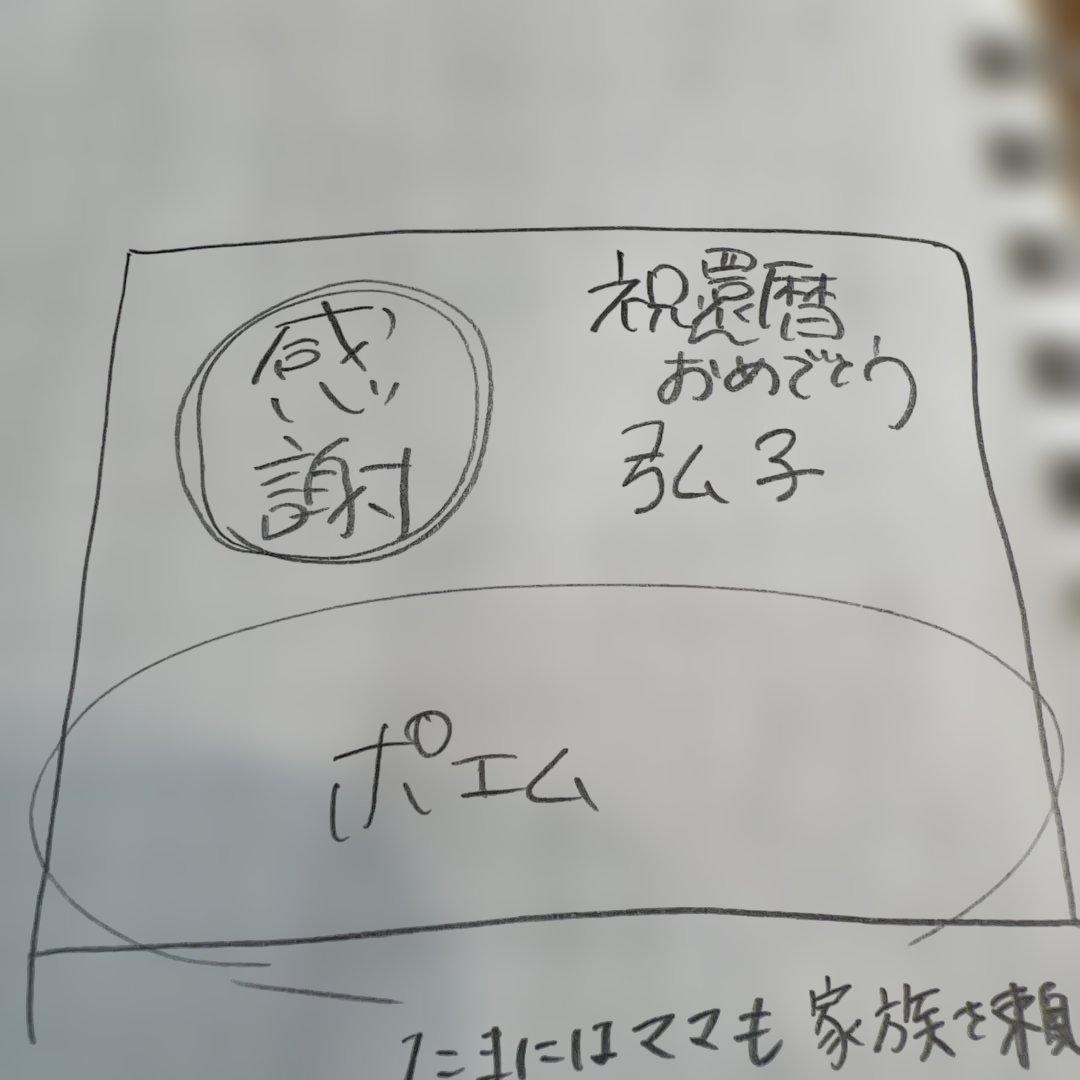 感
謝
祝還暦
おめでとう
弘子
ポエム
たまにはママも家族を頼